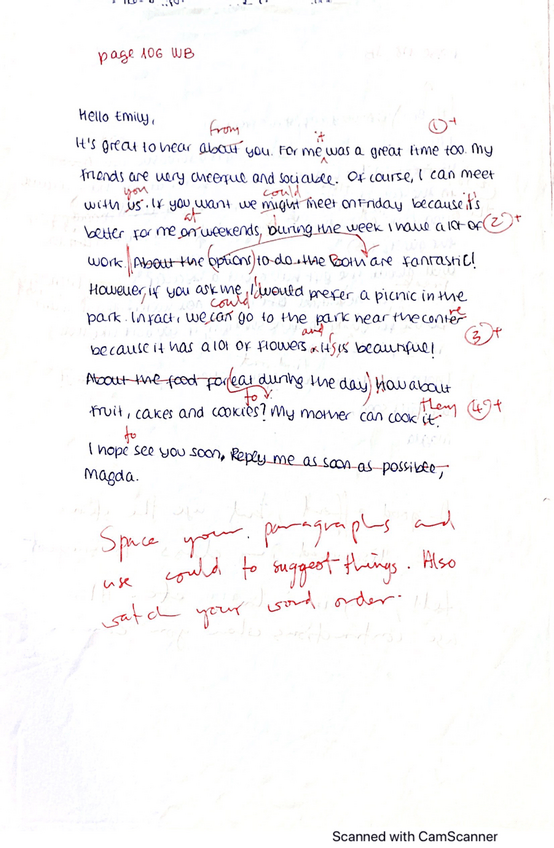 page 106 WB
Hello Emily,
from it ①+
It's great to hear about you. For me was a great time too. My
friends are very cheerful and sociable. Of course, I can meet
you could
with us. If you want we might meet on Friday because it's
at
better for me on weekends, during the week I have a lot of ②+
work. About the (options) to do the Both are fantastic!
However, if you ask me, I'would prefer a picnic in the
could
park. In fact, we can go to the park near the center re
and ③+
because it has a lot of flowers. It's is beautiful!
About the food for (eat during the day) How about
to them ④+
fruit, cakes and cookies? My mother can cook it.
to
I hope see you soon, Reply me as soon as possible,
Magda.
Space your paragraphs and
use could to suggest things. Also
watch your word order.
Scanned with CamScanner